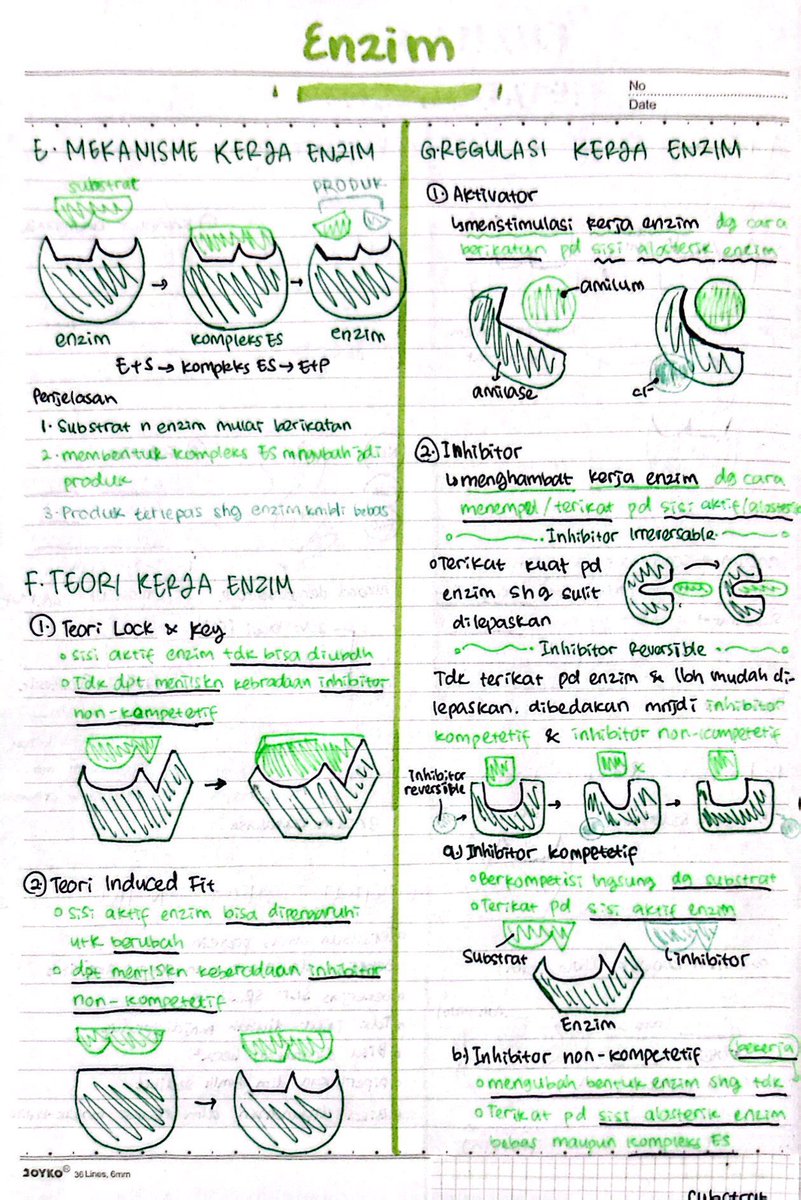 Enzim
No
Date
E. MEKANISME KERJA ENZIM
substrat
PRODUK
enzim
kompleks ES
enzim
E+S → kompleks ES → E+P
Penjelasan
1. Substrat n enzim mulai berikatan
2. membentuk kompleks ES mngubah jdi
produk
3. Produk terlepas shg enzim kmbli bebas
F. TEORI KERJA ENZIM
1. Teori Lock & Key
sisi aktif enzim tdk bisa diubah
Tdk dpt menjlskn kebradaan inhibitor
non-kompetetif
2. Teori Induced Fit
sisi aktif enzim bisa dipengaruhi
utk berubah
dpt menjlskn keberadaan inhibitor
non-kompetetif
G. REGULASI KERJA ENZIM
1. Aktivator
↳ menstimulasi kerja enzim dg cara
berikatan pd sisi alosterik enzim
amilum
amilase
cl-
2. Inhibitor
↳ menghambat kerja enzim dg cara
menempel/terikat pd sisi aktif/alosterik
Inhibitor Irreversable
Terikat kuat pd
enzim shg sulit
dilepaskan
Inhibitor Reversible
Tdk terikat pd enzim & lbh mudah di-
lepaskan. dibedakan mnjdi inhibitor
kompetetif & inhibitor non-kompetetif
Inhibitor
reversible
a.) Inhibitor kompetetif
Berkompetisi lngsung dg substrat
Terikat pd sisi aktif enzim
Substrat
inhibitor
Enzim
b) Inhibitor non-kompetetif
bekerja
mengubah bentuk enzim shg tdk
Terikat pd sisi alosterik enzim
bebas maupun kompleks ES
JOYKO® 36 Lines, 6mm
substrat